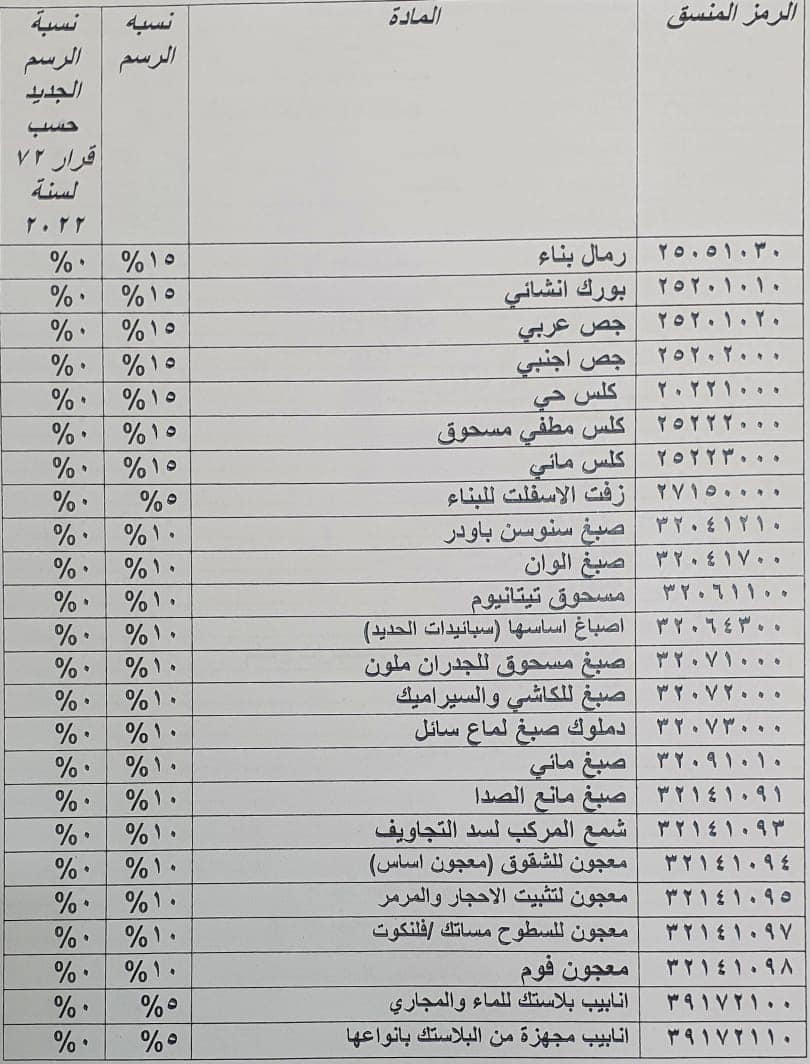 الرمز المنسق | المادة | نسبه الرسم | نسبة الرسم الجديد حسب قرار ٧٢ لسنة ٢٠٢٢
٢٥٠٥١٠٣٠ | رمال بناء | %١٥ | %٠
٢٥٢٠١٠١٠ | بورك انشائي | %١٥ | %٠
٢٥٢٠١٠٢٠ | جص عربي | %١٥ | %٠
٢٥٢٠٢٠٠٠ | جص اجنبي | %١٥ | %٠
٢٠٢٢١٠٠٠ | كلس حي | %١٥ | %٠
٢٥٢٢٢٠٠٠ | كلس مطفي مسحوق | %١٥ | %٠
٢٥٢٢٣٠٠٠ | كلس مائي | %١٥ | %٠
٢٧١٥٠٠٠٠ | زفت الاسفلت للبناء | %٥ | %٠
٣٢٠٤١٢١٠ | صبغ سنوسن باودر | %١٠ | %٠
٣٢٠٤١٧٠٠ | صبغ الوان | %١٠ | %٠
٣٢٠٦١١٠٠ | مسحوق تيتانيوم | %١٠ | %٠
٣٢٠٦٤٣٠٠ | اصباغ اساسها (سيانيدات الحديد) | %١٠ | %٠
٣٢٠٧١٠٠٠ | صبغ مسحوق للجدران ملون | %١٠ | %٠
٣٢٠٧٢٠٠٠ | صبغ للكاشي والسيراميك | %١٠ | %٠
٣٢٠٧٣٠٠٠ | دملوك صبغ لماع سائل | %١٠ | %٠
٣٢٠٩١٠١٠ | صبغ مائي | %١٠ | %٠
٣٢١٤١٠٩١ | صبغ مانع الصدا | %١٠ | %٠
٣٢١٤١٠٩٣ | شمع المركب لسد التجاويف | %١٠ | %٠
٣٢١٤١٠٩٤ | معجون للشقوق (معجون اساس) | %١٠ | %٠
٣٢١٤١٠٩٥ | معجون لتثبيت الاحجار والمرمر | %١٠ | %٠
٣٢١٤١٠٩٧ | معجون للسطوح مساتك /فلنكوت | %١٠ | %٠
٣٢١٤١٠٩٨ | معجون فوم | %١٠ | %٠
٣٩١٧٢١٠٠ | انابيب بلاستك للماء والمجاري | %٥ | %٠
٣٩١٧٢١١٠ | انابيب مجهزة من البلاستك بانواعها | %٥ | %٠